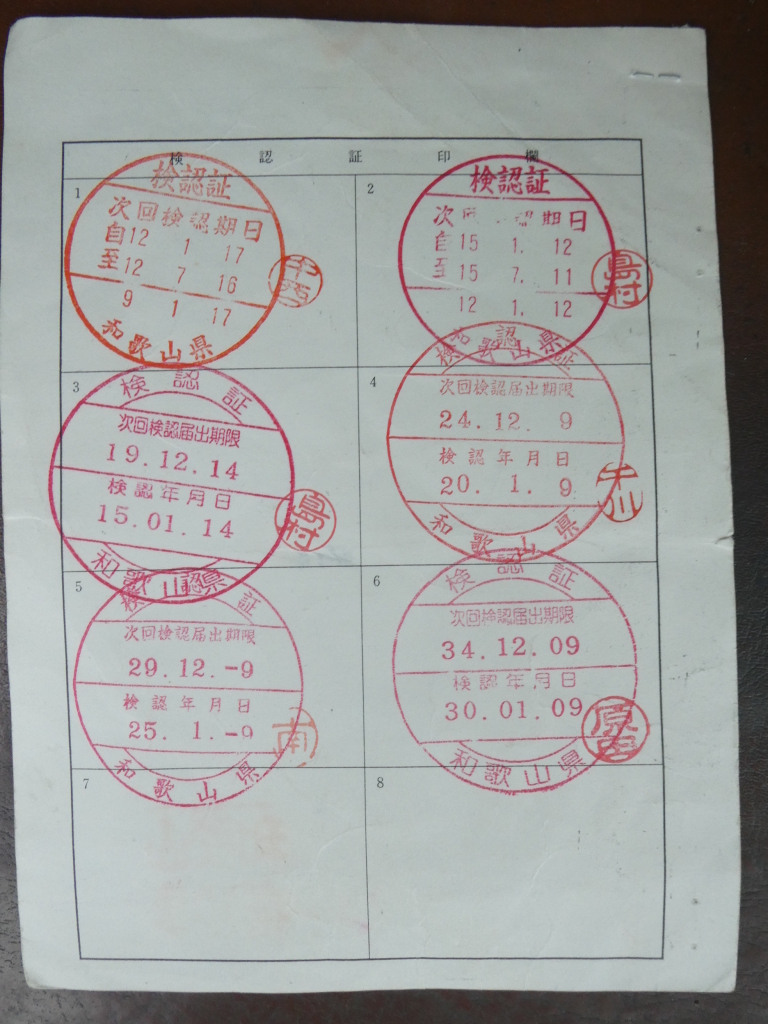 検認証印欄
1
検認証
次回検認期日
自12 1 17
至12 7 16
9 1 17
和歌山県
中西
2
検認証
次回検認期日
自15 1. 12
至15 7. 11
12 1. 12
和歌山県
島村
3
検認証
次回検認届出期限
19.12.14
検認年月日
15.01.14
和歌山県
島村
4
検認証
次回検認届出期限
24.12. 9
検認年月日
20. 1. 9
和歌山県
5
検認証
次回検認届出期限
29.12.-9
検認年月日
25. 1.-9
和歌山県
南
6
検認証
次回検認届出期限
34.12.09
検認年月日
30.01.09
和歌山県
7
8